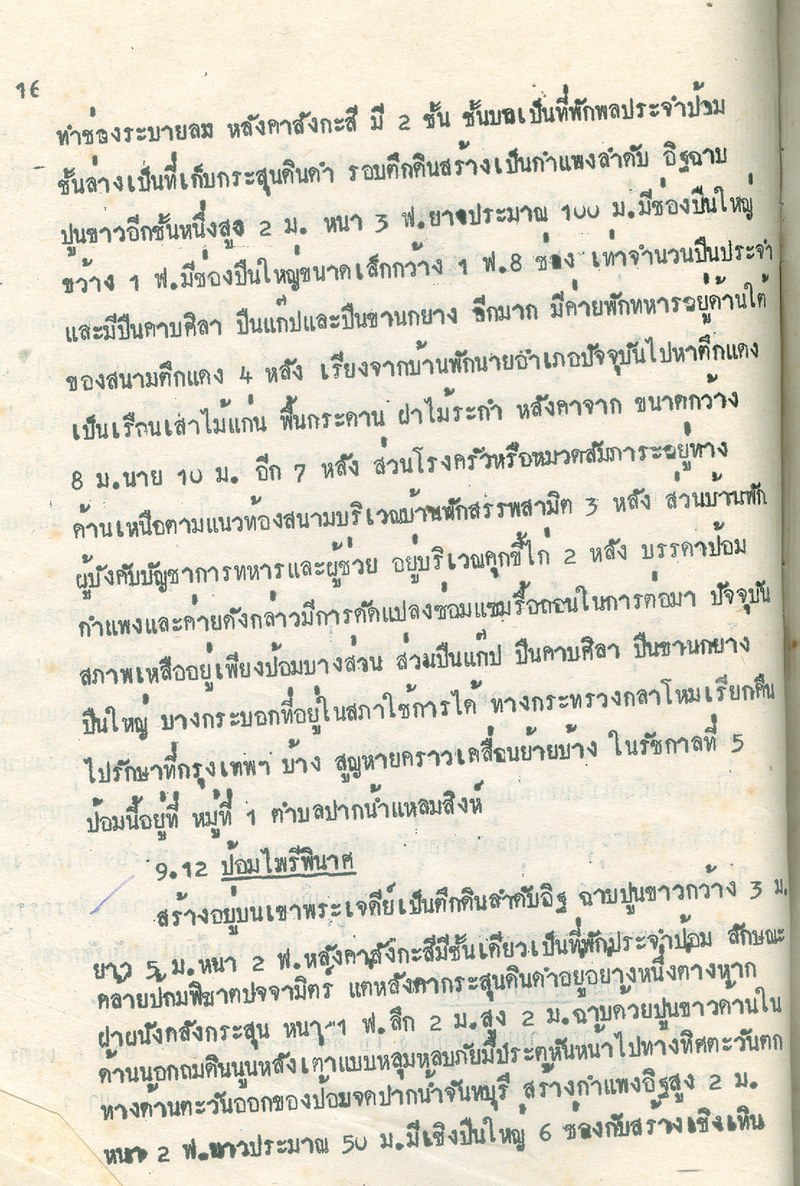 16
ทำช่องระบายลม หลังคาสังกะสี มี 2 ชั้น ชั้นบนเป็นที่พักพลประจำป้อม
ชั้นล่างเป็นที่เก็บกระสุนดินดำ รอบตึกดินสร้างเป็นกำแพงลำดับ อิฐฉาบ
ปูนขาวอีกชั้นหนึ่งสูง 2 ม. หนา 3 ฟ.ยาวประมาณ 100 ม.มีช่องปืนใหญ่
ขว้าง 1 ฟ.มีช่องปืนใหญ่ขนาดเล็กกว้าง 1 ฟ.8 ช่อง เท่าจำนวนปืนประจำ
และมีปืนดาบศิลา ปืนแก๊ปและปืนขานกยาง อีกมาก มีค่ายพักทหารอยู่ด้านใต้
ของสนามตึกแดง 4 หลัง เรียงจากบ้านพักนายอำเภอปัจจุบันไปหาตึกแดง
เป็นเรือนเสาไม้แก่น พื้นกระดาน ฝาไม้ระกำ หลังคาจาก ขนาดกว้าง
8 ม.นาย 10 ม. อีก 7 หลัง ส่วนโรงครัวหรือหมวดสัมภาระอยู่ทาง
ด้านเหนือตามแนวท้องสนามบริเวณบ้านพักสรรพสามิต 3 หลัง ส่วนบ้านพัก
ผู้บังคับบัญชาการทหารและผู้ช่วย อยู่บริเวณคุกขี้ไก่ 2 หลัง บรรดาป้อม
กำแพงและค่ายดังกล่าวมีการดัดแปลงซ่อมแซมรื้อถอนในการต่อมา ปัจจุบัน
สภาพเหลืออยู่เพียงป้อมบางส่วน ส่วนปืนแก๊ป ปืนดาบศิลา ปืนขานกยาง
ปืนใหญ่ บางกระบอกที่อยู่ในสภาใช้การได้ ทางกระทรวงกลาโหมเรียกคืน
ไปรักษาที่กรุงเทพฯ บ้าง สูญหายคราวเคลื่อนย้ายบ้าง ในรัชกาลที่ 5
ป้อมนี้อยู่ที่ หมู่ที่ 1 ตำบลปากน้ำแหลมสิงห์
9.12 ป้อมไพรีพินาศ
สร้างอยู่บนเขาพระเจดีย์เป็นตึกดินลำดับอิฐ ฉาบปูนขาวกว้าง 3 ม.
ยาว 5 ม.หนา 2 ฟ.หลังคาสังกะสีมีชั้นเดียวเป็นที่พักประจำป้อม ลักษณะ
คล้ายป้อมพิฆาตปจจามิตร์ แต่หลังคากระสุนดินดำอยู่อย่างหนึ่งต่างหาก
ฝ่ายนังคลังกระสุน หนา 1 ฟ.ลึก 2 ม.สูง 2 ม.ฉาบด้วยปูนขาวด้านใน
ด้านนอกถมดินนูนหลังเตาแบบหลุมหลบภัยมีประตูหันหน้าไปทางทิศตะวันตก
ทางด้านตะวันออกของป้อมจดปากน้ำจันทบุรี สร้างกำแพงอิฐสูง 2 ม.
หนา 2 ฟ.ยาวประมาณ 50 ม.มีเชิงปืนใหญ่ 6 ช่องกับสร้างเชิงเทิน